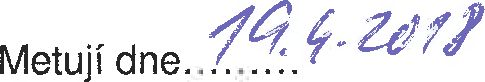 Metují dne......... 19.4.2018